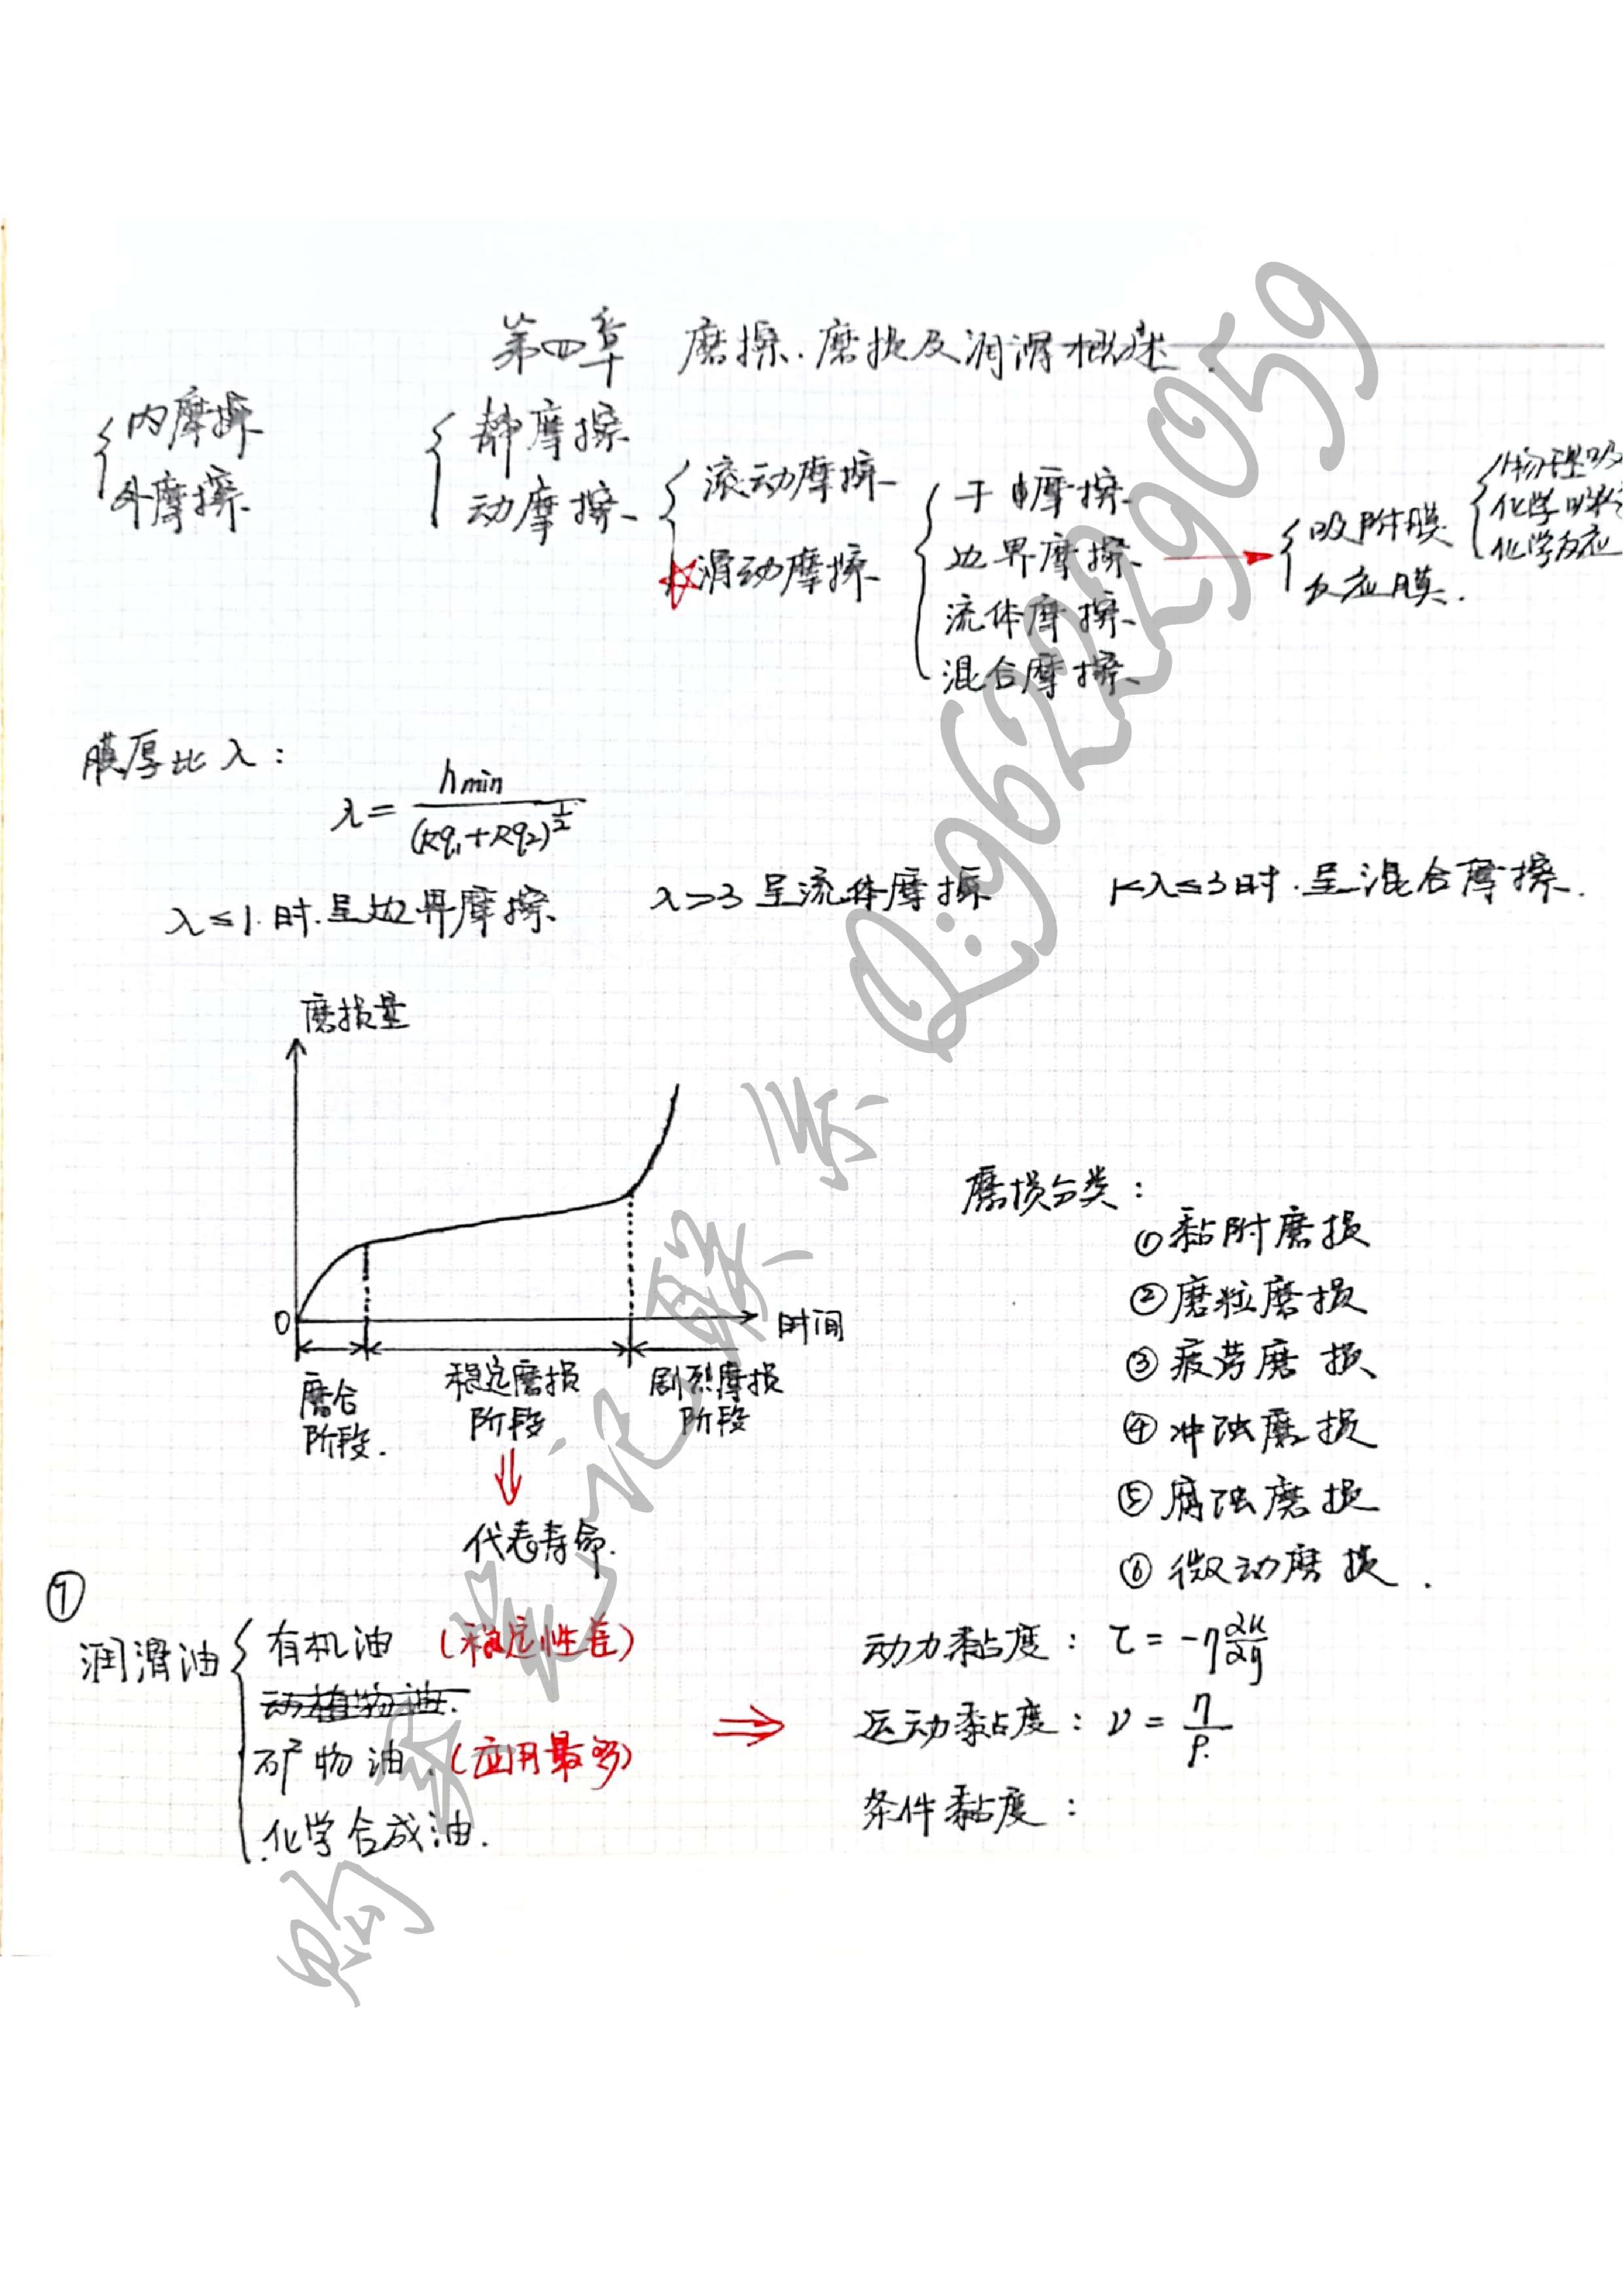 第四章 磨擦.磨损及润滑概述.
内摩擦
外摩擦
静摩擦
动摩擦
滚动摩擦
滑动摩擦
干摩擦
边界摩擦
流体摩擦
混合摩擦
吸附膜
反应膜.
物理吸
化学吸附
化学反应
膜厚比λ:
λ = hmin / (Rq₁+Rq₂)^½
λ≤1.时.呈边界摩擦
λ>3 呈流体摩擦
1<λ≤3时.呈混合摩擦.
磨损量
0
时间
磨合
阶段.
稳定磨损
阶段
剧烈摩损
阶段
代表寿命.
磨损分类:
①黏附磨损
②磨粒磨损
③疲劳磨损
④冲蚀磨损
⑤腐蚀磨损
⑥微动磨损.
①
润滑油
有机油 (稳定性差)
动植物油.
矿物油.(应用最多)
化学合成油.
动力黏度: τ = -η ∂u/∂y
运动黏度: ν = η/ρ.
条件黏度:
购买笔记联系Q:96229059